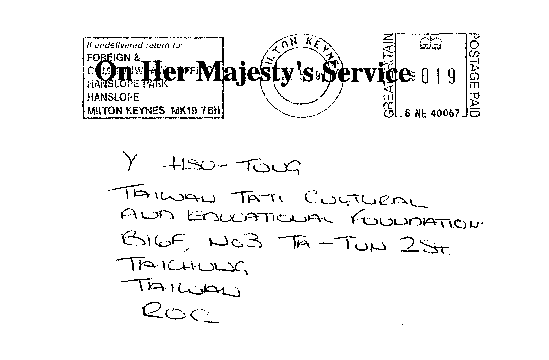 If undelivered return to:
FOREIGN &
On Her Majesty's Service
HANSLOPE PARK
HANSLOPE
MILTON KEYNES MK19 7BH
MILTON KEYNES
GREAT BRITAIN
019
POSTAGE PAID
Y HSU-TUNG
TAIWAN TATI CULTURAL
AND EDUCATIONAL FOUNDATION
B16F, NO3 TA-TUN 2ST
TAICHUNG
TAIWAN
ROC